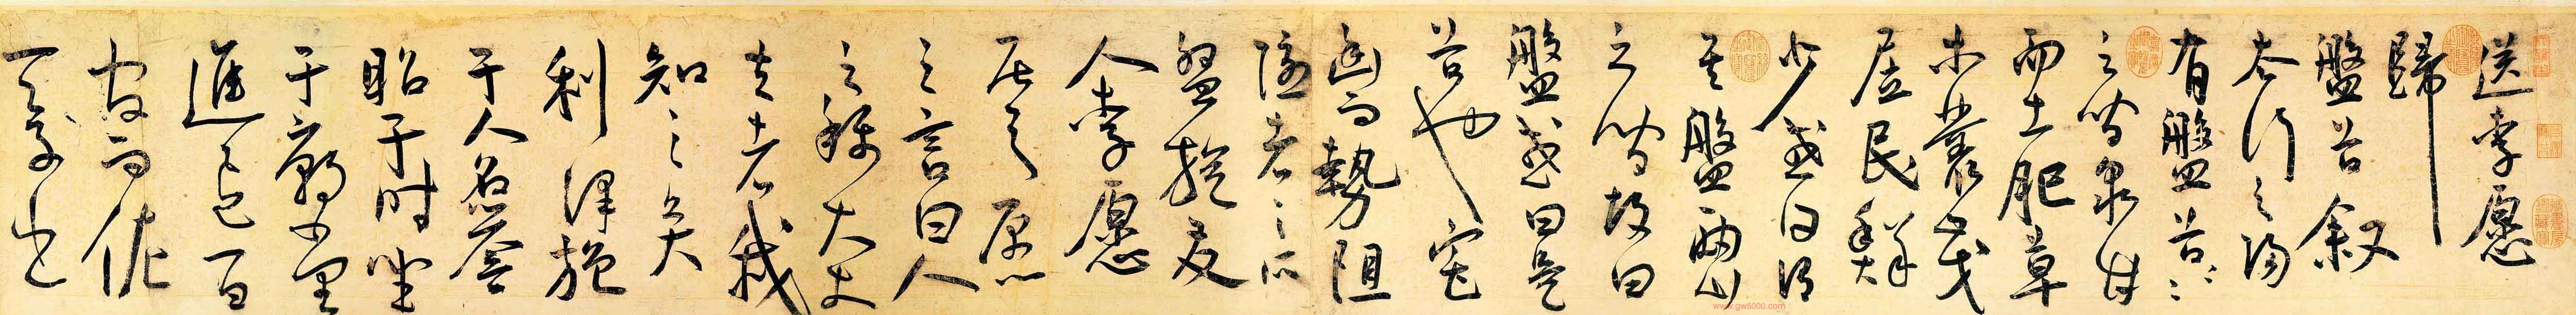 送李愿
歸
盤谷叙
太行之陽
有盤谷〻
之間泉甘
而土肥草
木藂茂
居民鮮
少或曰謂
其盤兩山
之間故曰
盤或曰是
谷也宅
幽而勢阻
隱者之所
盤旋友
人李愿
居之愿
之言曰人
之稱大丈
夫者我
知之矣
利澤施
于人名譽
昭于時坐
于廟堂
進退百
官而佐
天子出
www.gw5000.com